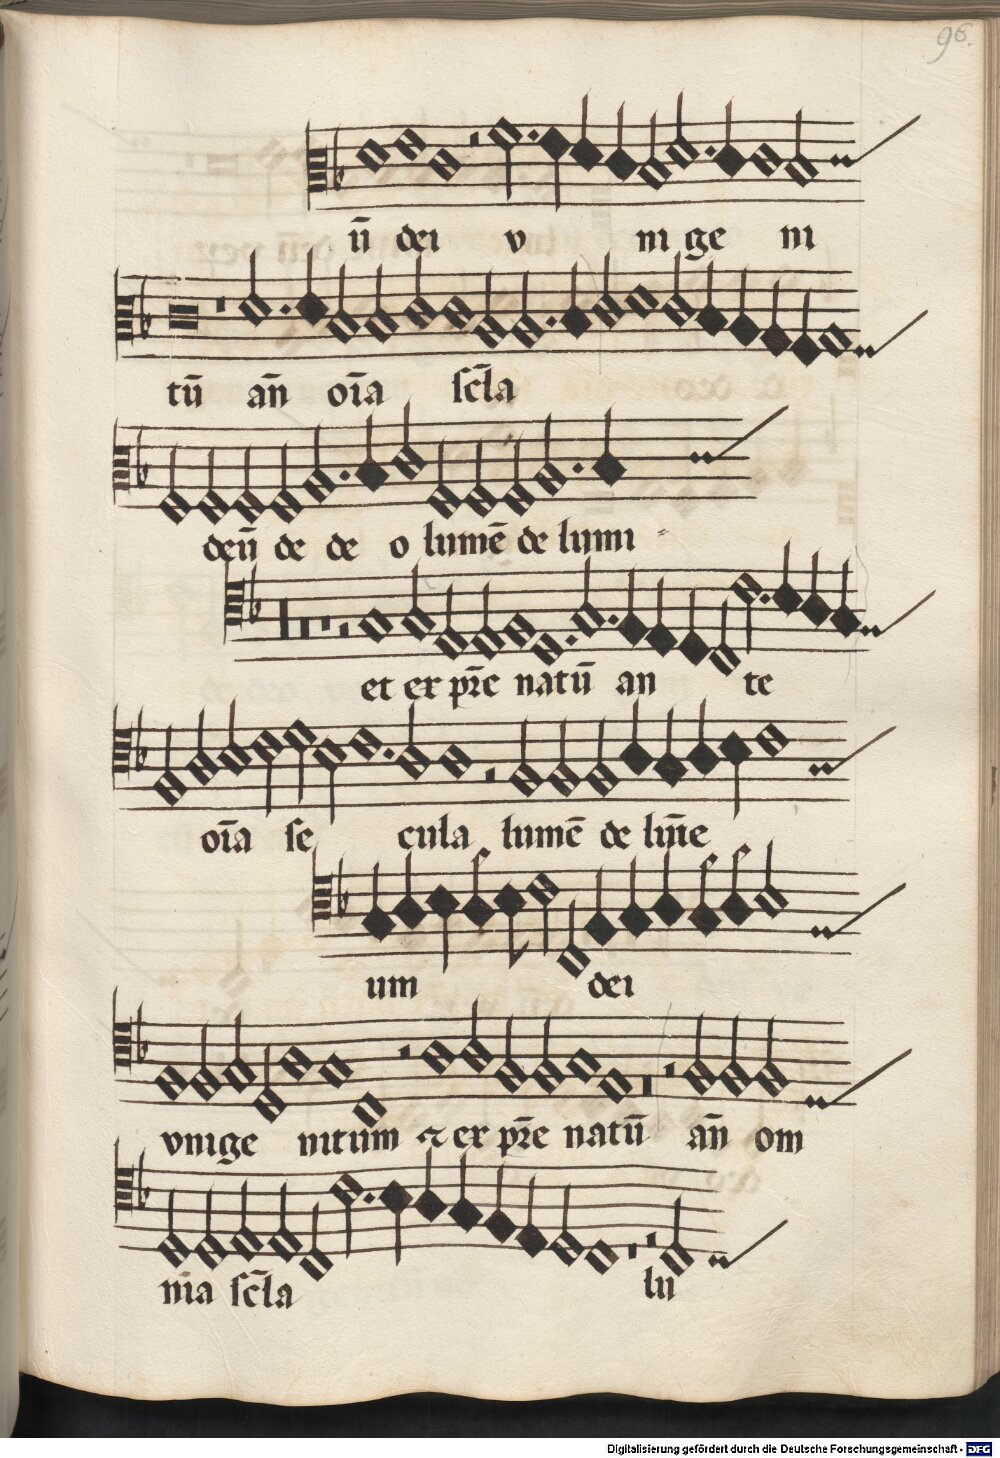 96.
ū dei v ni ge ni
tū an̄ oīa scl̄a
deū de de o lumē de lumi
et ex pr̄e natū an te
oīa se cula lumē de lūīe
um dei
vnige nitum ⁊ ex pr̄e natū an̄ om
nia scl̄a lu
Digitalisierung gefördert durch die Deutsche Forschungsgemeinschaft - DFG